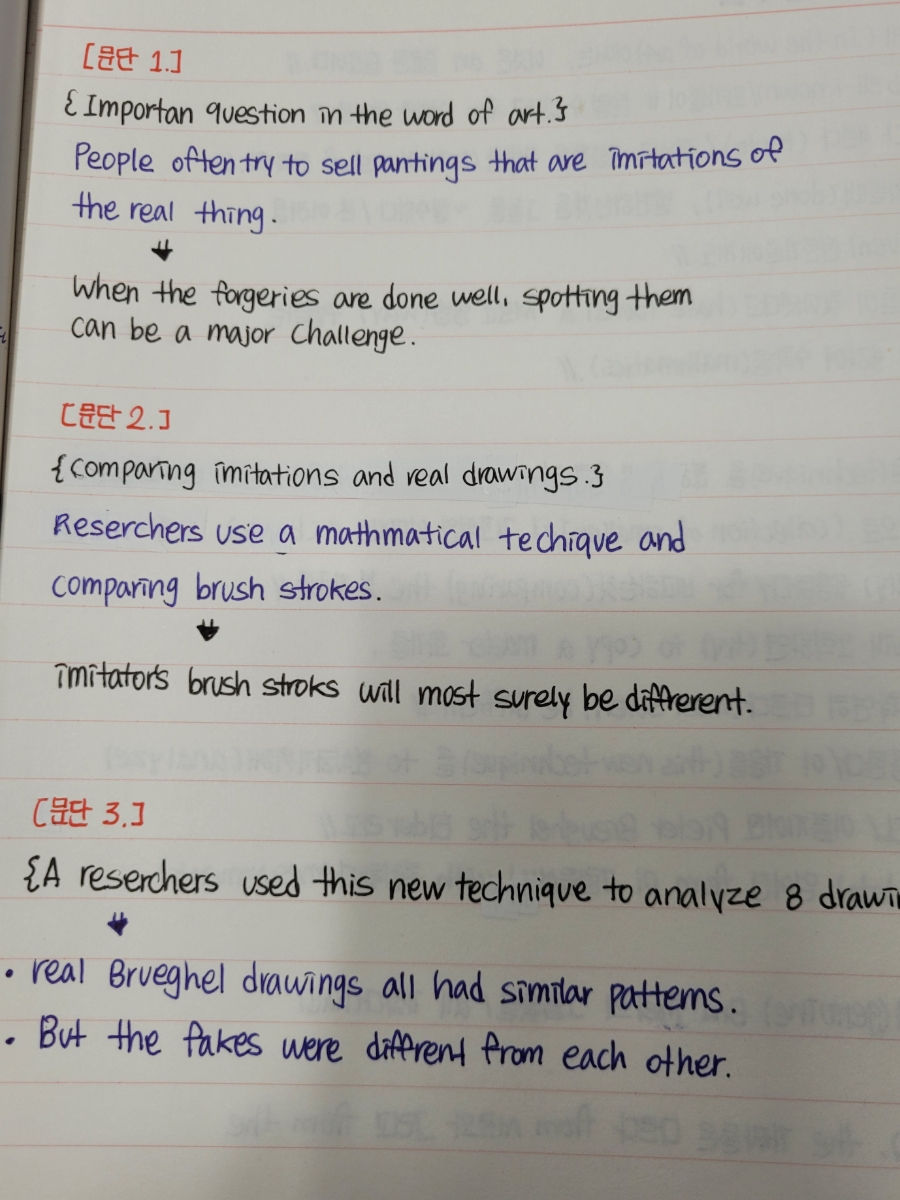 [문단 1.]
{Importan question in the word of art.}
People often try to sell pantings that are imitations of
the real thing.
When the forgeries are done well, spotting them
can be a major challenge.
[문단 2.]
{comparing imitations and real drawings.}
Reserchers use a mathmatical techique and
comparing brush strokes.
imitators brush stroks will most surely be diffrerent.
[문단 3.]
{A reserchers used this new technique to analyze 8 drawin
· real Brueghel drawings all had similar patterns.
· But the fakes were diffrent from each other.